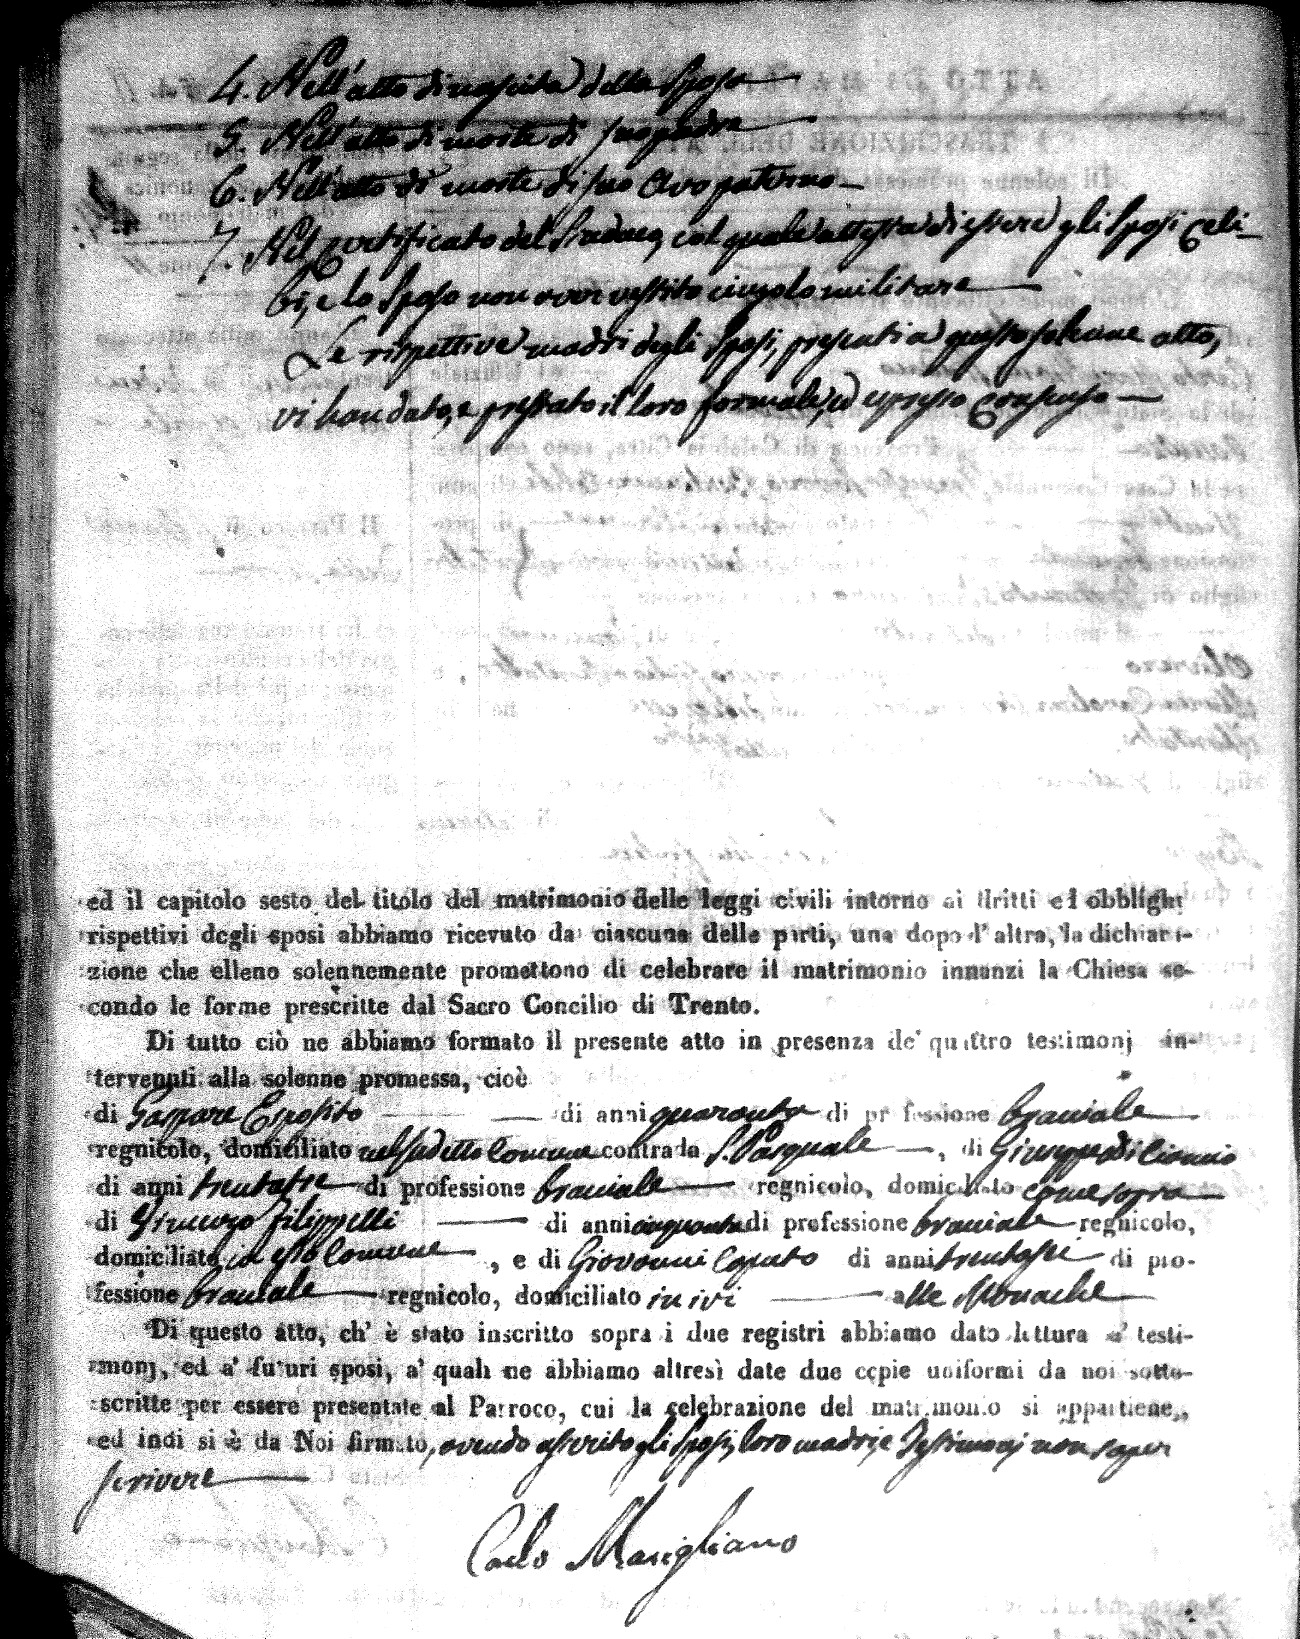 4. Nell'atto di nascita della Sposa
5. Nell'atto di morte di suo padre
6. Nell'atto di morte di suo Avo paterno
7. Nel certificato del Sindaco, col quale attesta di essere gli Sposi celi-
bi, e lo Sposo non aver vestito cingolo militare
Le rispettive madri degli Sposi, presenti a questo solenne atto,
vi han dato, e prestato il loro formale, ed espresso consenso
ed il capitolo sesto del titolo del matrimonio delle leggi civili intorno ai dritti ed obblighi
rispettivi degli sposi abbiamo ricevuto da ciascuna delle parti, una dopo l'altra, la dichiara-
zione che elleno solennemente promettono di celebrare il matrimonio innanzi la Chiesa se-
condo le forme prescritte dal Sacro Concilio di Trento.
Di tutto ciò ne abbiamo formato il presente atto in presenza de' quattro testimonj in-
tervenuti alla solenne promessa, cioè
di Gaspare Esposito di anni quaranta di professione bracciale
regnicolo, domiciliato nel sudetto Comune contrada S. Pasquale, di Giuseppe di Ciannio
di anni trentatre di professione bracciale regnicolo, domiciliato come sopra
di Vincenzo Filippelli di anni cinquanta di professione bracciale regnicolo,
domiciliato in esso Comune, e di Giovanni Caputo di anni trentasei di pro-
fessione bracciale regnicolo, domiciliato in ivi alle Monache
Di questo atto, ch' è stato inscritto sopra i due registri abbiamo dato lettura a' testi-
monj, ed a' futuri sposi, a' quali ne abbiamo altresì date due copie uniformi da noi sotto-
scritte per essere presentate al Parroco, cui la celebrazione del matrimonio si appartiene,
ed indi si è da Noi firmato, avendo asserito gli Sposi, loro madri, e Testimonj non saper
scrivere
Carlo Marigliano